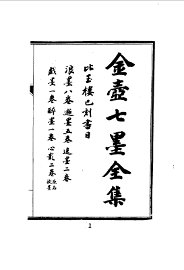 金壺七墨全集
比玉樓已刻書目
浪墨八卷 遯墨五卷 逸墨二卷
戲墨一卷 醉墨一卷 心影二卷
1